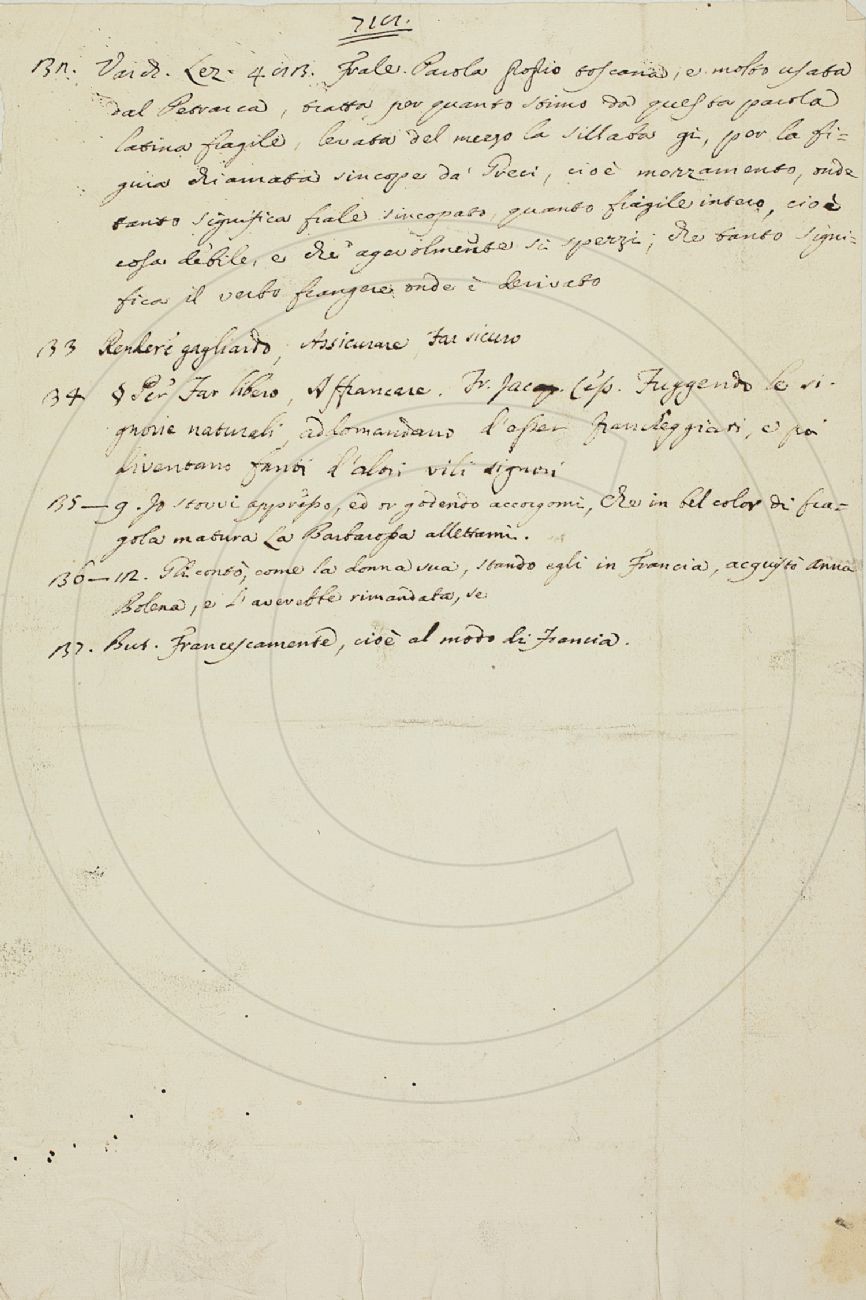 132. Varch. Lez. 4 Frale. Parola proprio toscana, e molto usata
dal Petrarca, tratta per quanto stimo da questa parola
latina fragile, levata del mezzo la sillaba gi, per la fi=
gura chiamata sincope da' Greci, cioè mozzamento, onde
tanto significa frale sincopato, quanto fragile intero, cioè
cosa debile, e che agevolmente si spezzi; che tanto signi=
fica il verbo frangere onde è derivato
133 Render gagliardo, Assicurare, Far sicuro
34 § Per Far libero, Affrancare. Fr. Jacop. Cess. Fuggendo le si=
gnorie naturali, addomandano d'esser francheggiati, e poi
diventano fanti d'altri vili signori
135 — 9. Io stovvi appresso, ed or godendo accorgomi, che in bel color di fra=
gola matura La Barbarossa allettami.
136 — 12. Gli contò, come la donna sua, stando egli in Francia, acquistò Anna
Bolena, e l'averebbe rimandata, se
137. But. Francescamente, cioè al modo di Francia.